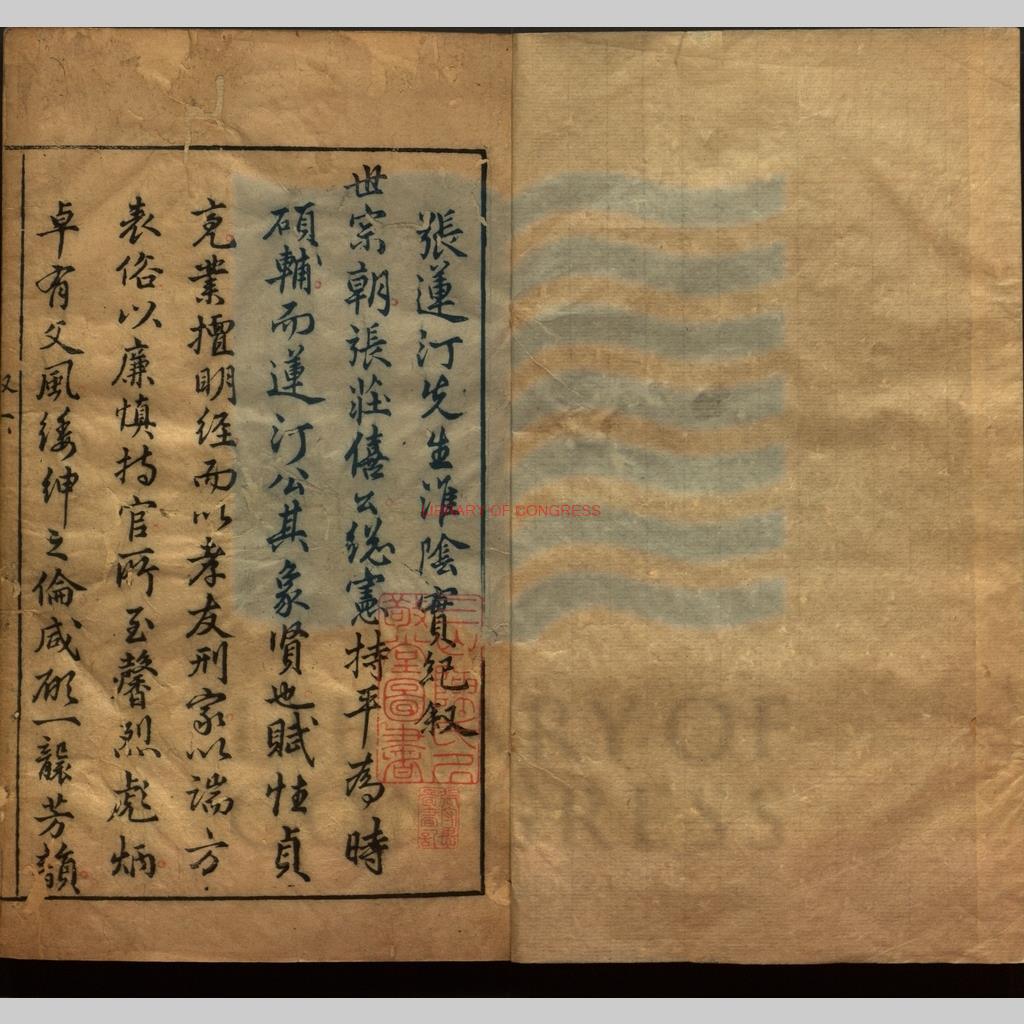 張蓮汀先生淮陰實紀叙
世宗朝張莊僖公總憲持平為時
碩輔而蓮汀公其象賢也賦性貞
亮業擅明經而以孝友刑家以端方
表俗以廉慎持官所至馨烈彪炳
卓有父風緌紳之倫咸願一襲芳韻
LIBRARY OF CONGRESS